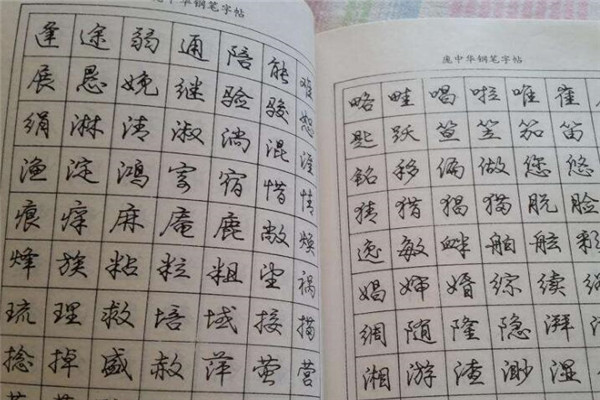 庞中华钢笔字帖
逢 途 弱 通 陪 能 难
展 恳 娩 继 验 骏 恕
绢 淋 清 淑 淌 混
渔 淀 鸿 寄 宿 惜 情
痕 痒 麻 庵 鹿 焕
烽 族 粘 粒 粗 望 祸
琉 理 救 培 域 接 描
捻 掉 盛 赦 萍 萤 营
庞中华钢笔字帖
略 畦 唱 啦 唯 崔
匙 跃 笪 笠 笳 笛
铭 移 偏 做 您 悠
猜 猎 猖 猫 脱 脸
逸 敏 衅 舶 舷 彩
娼 婶 婚 综 续
绸 随 隆 隐 湃
湘 游 渣 渺 湿